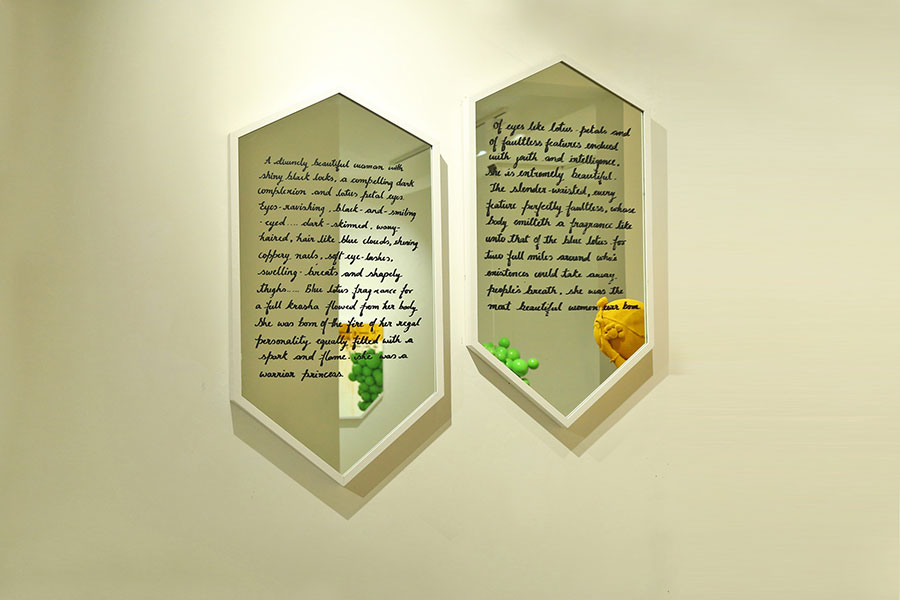 A divinely beautiful woman with
shiny black locks, a compelling dark
complexion and lotus petal eyes.
Eyes-ravishing, black-and-smiling
-eyed.... dark-skinned, wavy-
haired, hair like blue clouds, shining
coppery nails, soft eye-lashes,
swelling-breats and shapely
thighs..... Blue lotus fragrance for
a full krosha flowed from her body.
She was born of the fire of her regal
personality equally filled with a
spark and flame. she was a
warrior princess.
Of eyes like lotus-petals and
of faultless features endued
with youth and intelligence,
she is extremely beautiful.
The slender-waisted, every
feature perfectly faultless, whose
body emitteth a fragrance like
unto that of the blue lotus for
two full miles around who's
existences could take away
people's breath, she was the
most beautiful women ever born